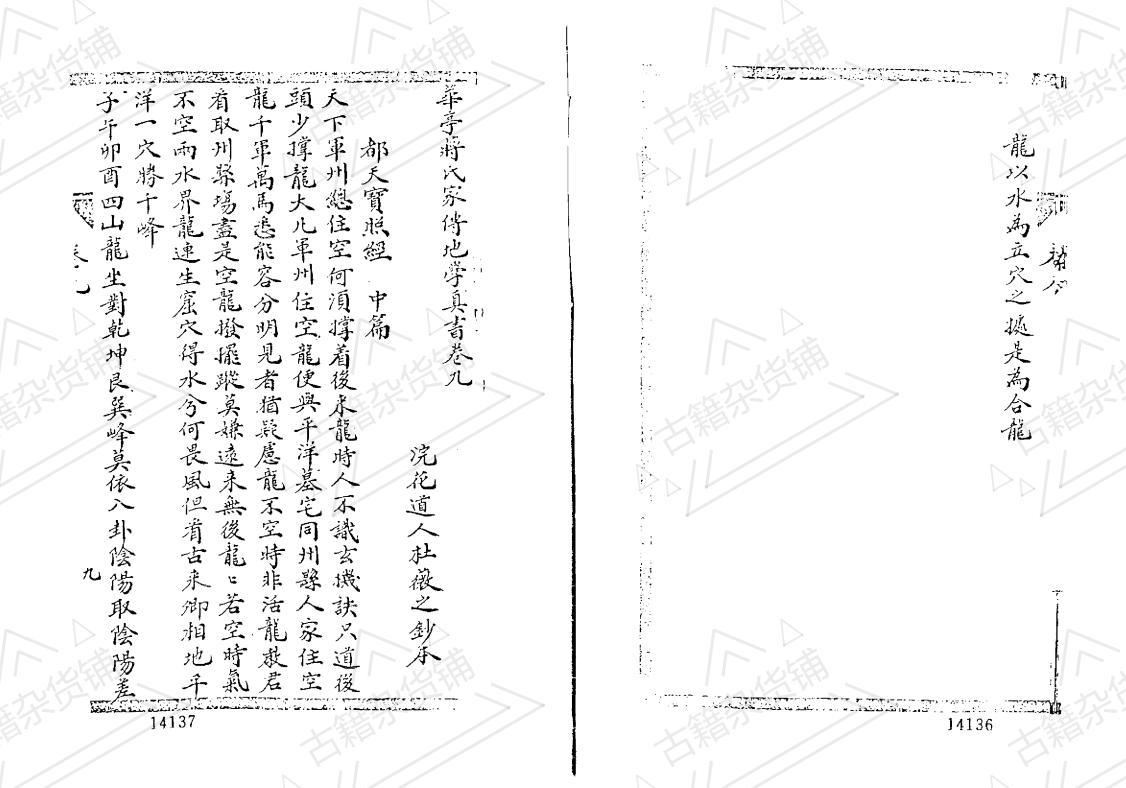 龍以水為立穴之據是為合龍
14136
華亭蔣氏家傳地學真書卷九
浣花道人杜薇之鈔本
都天寶照經 中篇
天下軍州總住空何須撑着後来龍時人不識玄機訣只道後
頭少撑龍大凡軍州住空龍便與平洋墓宅同州縣人家住空
龍千軍萬馬悉能容分明見者猶疑慮龍不空時非活龍教君
看取州縣塲盡是空龍撥擺蹤莫嫌遠来無後龍〻若空時氣
不空兩水界龍連生窟穴得水兮何畏風但看古来卿相地平
洋一穴勝千峰
子午卯酉四山龍坐對乾坤艮巽峰莫依八卦陰陽取陰陽差
卷九
九
14137
古籍杂货铺